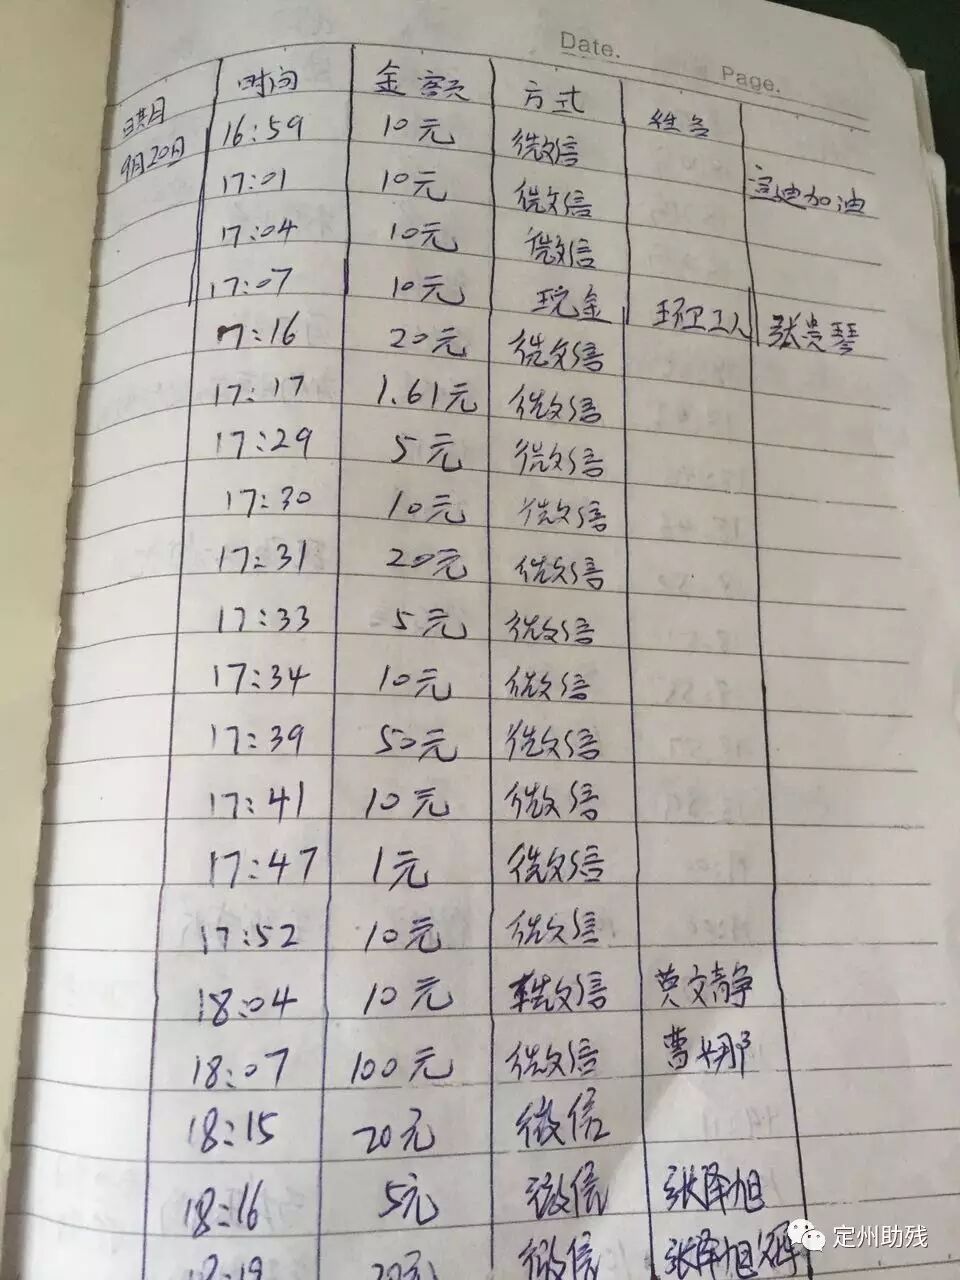 Date.
Page.
日期 时间 金额 方式 姓名
9月20日 16:59 10元 微信
17:01 10元 微信 加油
17:04 10元 微信
17:07 10元 现金 环卫工人 张贵琴
17:16 20元 微信
17:17 1.61元 微信
17:29 5元 微信
17:30 10元 微信
17:31 20元 微信
17:33 5元 微信
17:34 10元 微信
17:39 50元 微信
17:41 10元 微信
17:47 1元 微信
17:52 10元 微信
18:04 10元 微信 黄文静
18:07 100元 微信 曹娜
18:15 20元 微信
18:16 5元 微信 张泽旭
18:19 20元 微信 张泽旭
定州助残